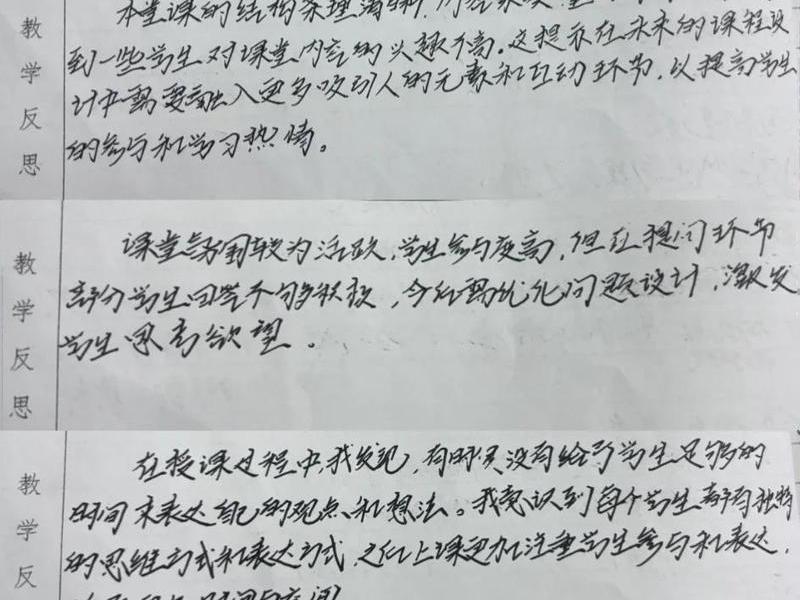 教学反思
本堂课的结构条理清晰,
到一些学生对课堂内容的兴趣不高。这提示在未来的课程设
计中需要融入更多吸引人的元素和互动环节,以提高学生
的参与和学习热情。
教学反思
课堂氛围较为活跃,学生参与度高,但在提问环节
部分学生回答不够积极,今后需优化问题设计,激发
学生思考欲望。
教学反
在授课过程中,我发现,有时候没有给予学生足够的
时间来表达自己的观点和想法。我意识到每个学生都有独特
的思维方式和表达方式,之后上课更加注重学生参与和表达,